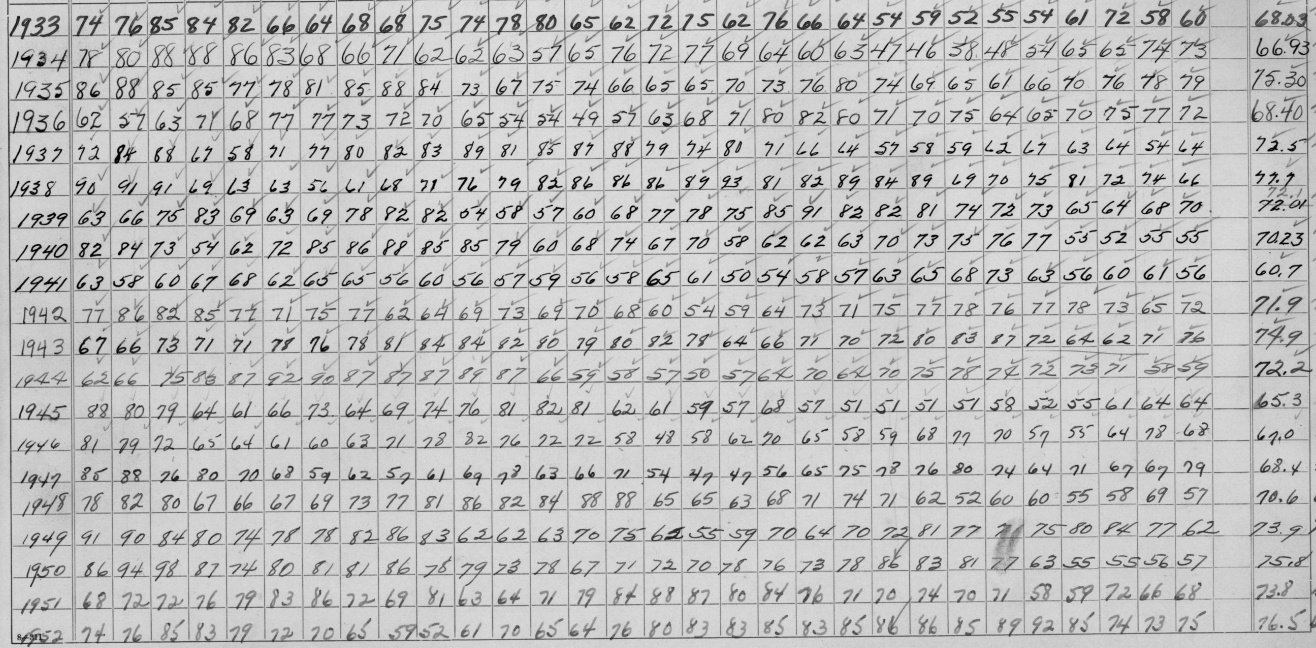 1933 74 76 85 84 82 66 64 68 68 75 74 78 80 65 62 72 75 62 76 66 64 54 59 52 55 54 61 72 58 60 68.03
1934 78 80 88 88 86 83 68 66 71 62 62 63 57 65 76 72 77 69 64 60 63 47 46 58 48 54 65 65 74 73 66.93
1935 86 88 85 85 77 78 81 85 88 84 73 67 75 74 66 65 65 70 73 76 80 74 69 65 61 66 70 76 78 79 75.30
1936 62 57 63 71 68 77 77 73 72 70 65 54 54 49 57 63 68 71 80 82 80 71 70 75 64 65 70 75 77 72 68.40
1937 72 84 88 67 58 71 77 80 82 83 89 81 85 87 88 79 74 80 71 66 64 57 58 59 62 67 63 64 54 64 72.5
1938 90 91 91 69 63 63 56 61 68 71 76 79 82 86 86 86 89 93 81 82 89 84 89 69 70 75 81 72 74 66 77.7
1939 63 66 75 83 69 63 69 78 82 82 54 58 57 60 68 77 78 75 85 91 82 82 81 74 72 73 65 64 68 70 72.01
1940 82 84 73 54 62 72 85 86 88 85 85 79 60 68 74 67 70 58 62 62 63 70 73 75 76 77 55 52 55 55 70.23
1941 63 58 60 67 68 62 65 65 56 60 56 57 59 56 58 65 61 50 54 58 57 63 65 68 73 63 56 60 61 56 60.7
1942 77 86 82 85 77 71 75 77 62 64 69 73 69 70 68 60 54 59 64 73 71 75 77 78 76 77 78 73 65 72 71.9
1943 67 66 73 71 71 78 76 78 81 84 84 82 80 79 80 82 78 64 66 71 70 72 80 83 87 72 64 62 71 76 74.9
1944 62 66 75 83 87 92 90 87 87 87 89 87 66 59 58 57 50 57 64 70 64 70 75 78 74 72 73 71 58 59 72.2
1945 88 80 79 64 61 66 73 64 69 74 76 81 82 81 62 61 59 57 68 57 51 51 51 51 58 52 55 61 64 64 65.3
1946 81 79 72 65 64 61 60 63 71 78 82 76 72 72 58 48 58 62 70 65 58 59 68 77 70 57 55 64 78 68 67.0
1947 85 88 76 80 70 68 59 62 57 61 69 78 63 66 71 54 47 47 56 65 75 78 76 80 74 64 71 67 67 79 68.4
1948 78 82 80 67 66 67 69 73 77 81 86 82 84 88 88 65 65 63 68 71 74 71 62 52 60 60 55 58 69 57 70.6
1949 91 90 84 80 74 78 78 82 86 83 62 62 63 70 75 62 55 59 70 64 70 72 81 77 71 75 80 84 77 62 73.9
1950 86 94 98 87 74 80 81 81 86 78 79 73 78 67 71 72 70 78 76 73 78 86 83 81 77 63 55 55 56 57 75.8
1951 68 72 72 76 79 83 86 72 69 81 63 64 71 79 84 88 87 80 84 76 71 70 74 70 71 58 59 72 66 68 73.8
1952 74 76 85 83 79 72 70 65 59 52 61 70 65 64 76 80 83 83 85 83 85 86 86 85 89 92 85 74 73 75 76.5